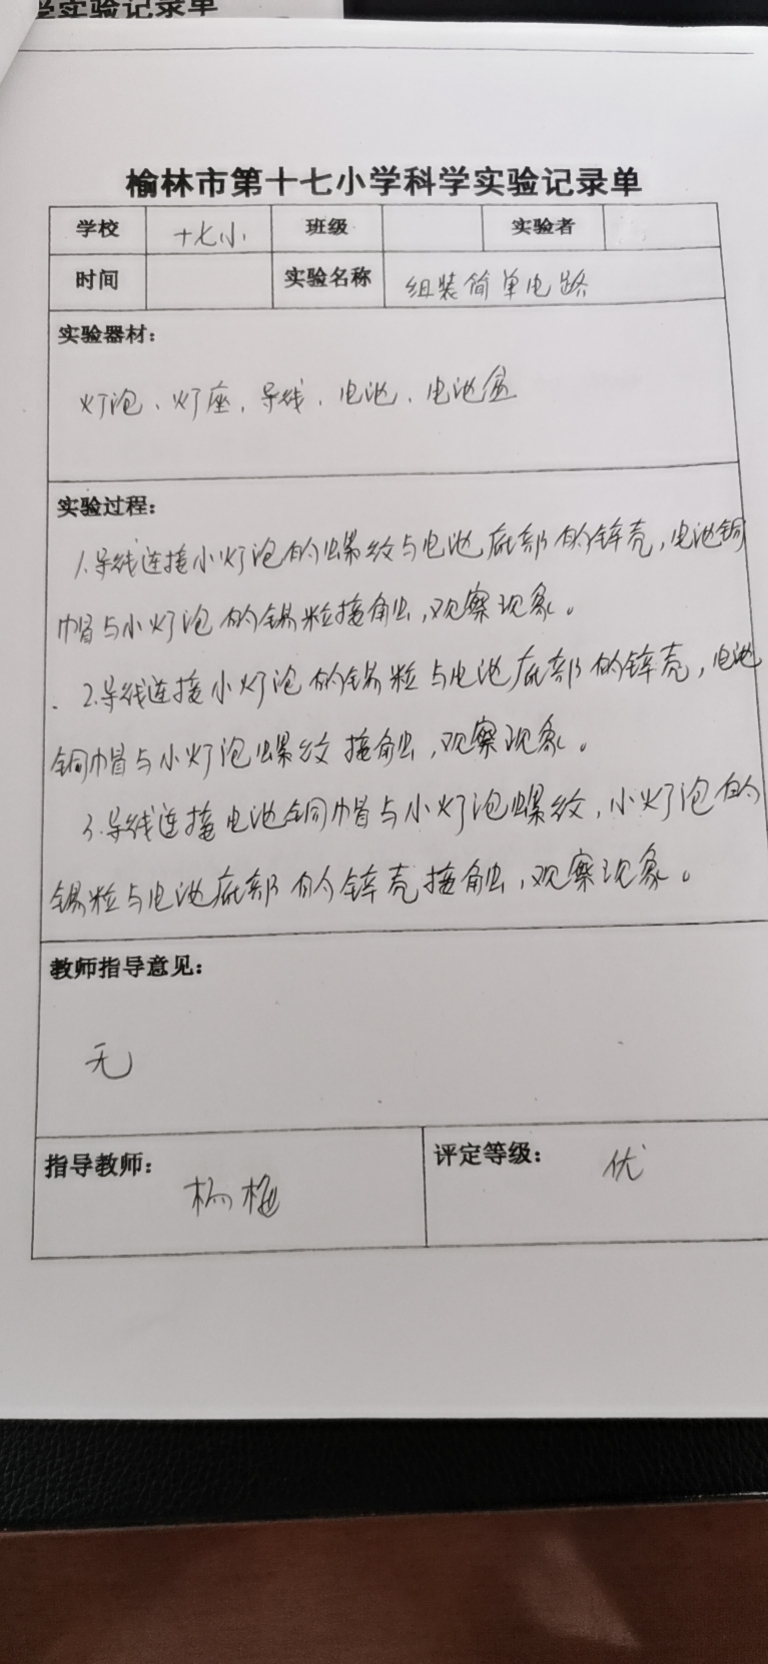 学实验记录单
榆林市第十七小学科学实验记录单
学校 十七小 班级 实验者
时间 实验名称 组装简单电路
实验器材：
灯泡、灯座、导线、电池、电池盒
实验过程：
1.导线连接小灯泡的螺纹与电池底部的锌壳，电池铜
帽与小灯泡的锡粒接触，观察现象。
2.导线连接小灯泡的锡粒与电池底部的锌壳，电池
铜帽与小灯泡螺纹接触，观察现象。
3.导线连接电池铜帽与小灯泡螺纹，小灯泡的
锡粒与电池底部的锌壳接触，观察现象。
教师指导意见：
无
指导教师： 评定等级： 优